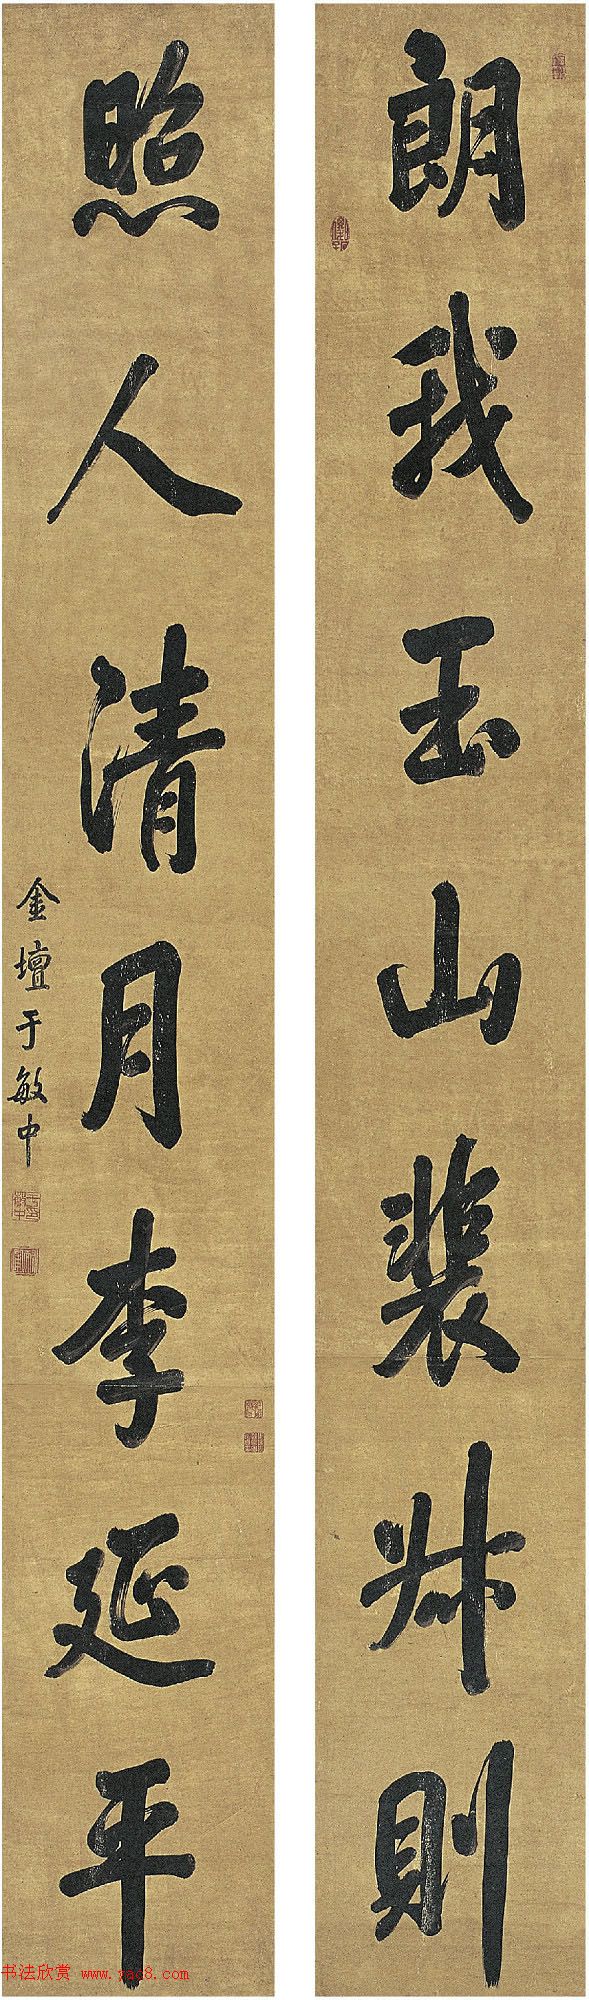 朗我玉山裴叔則
照人清月李延平
金壇于敏中
书法欣赏 www.yac8.com